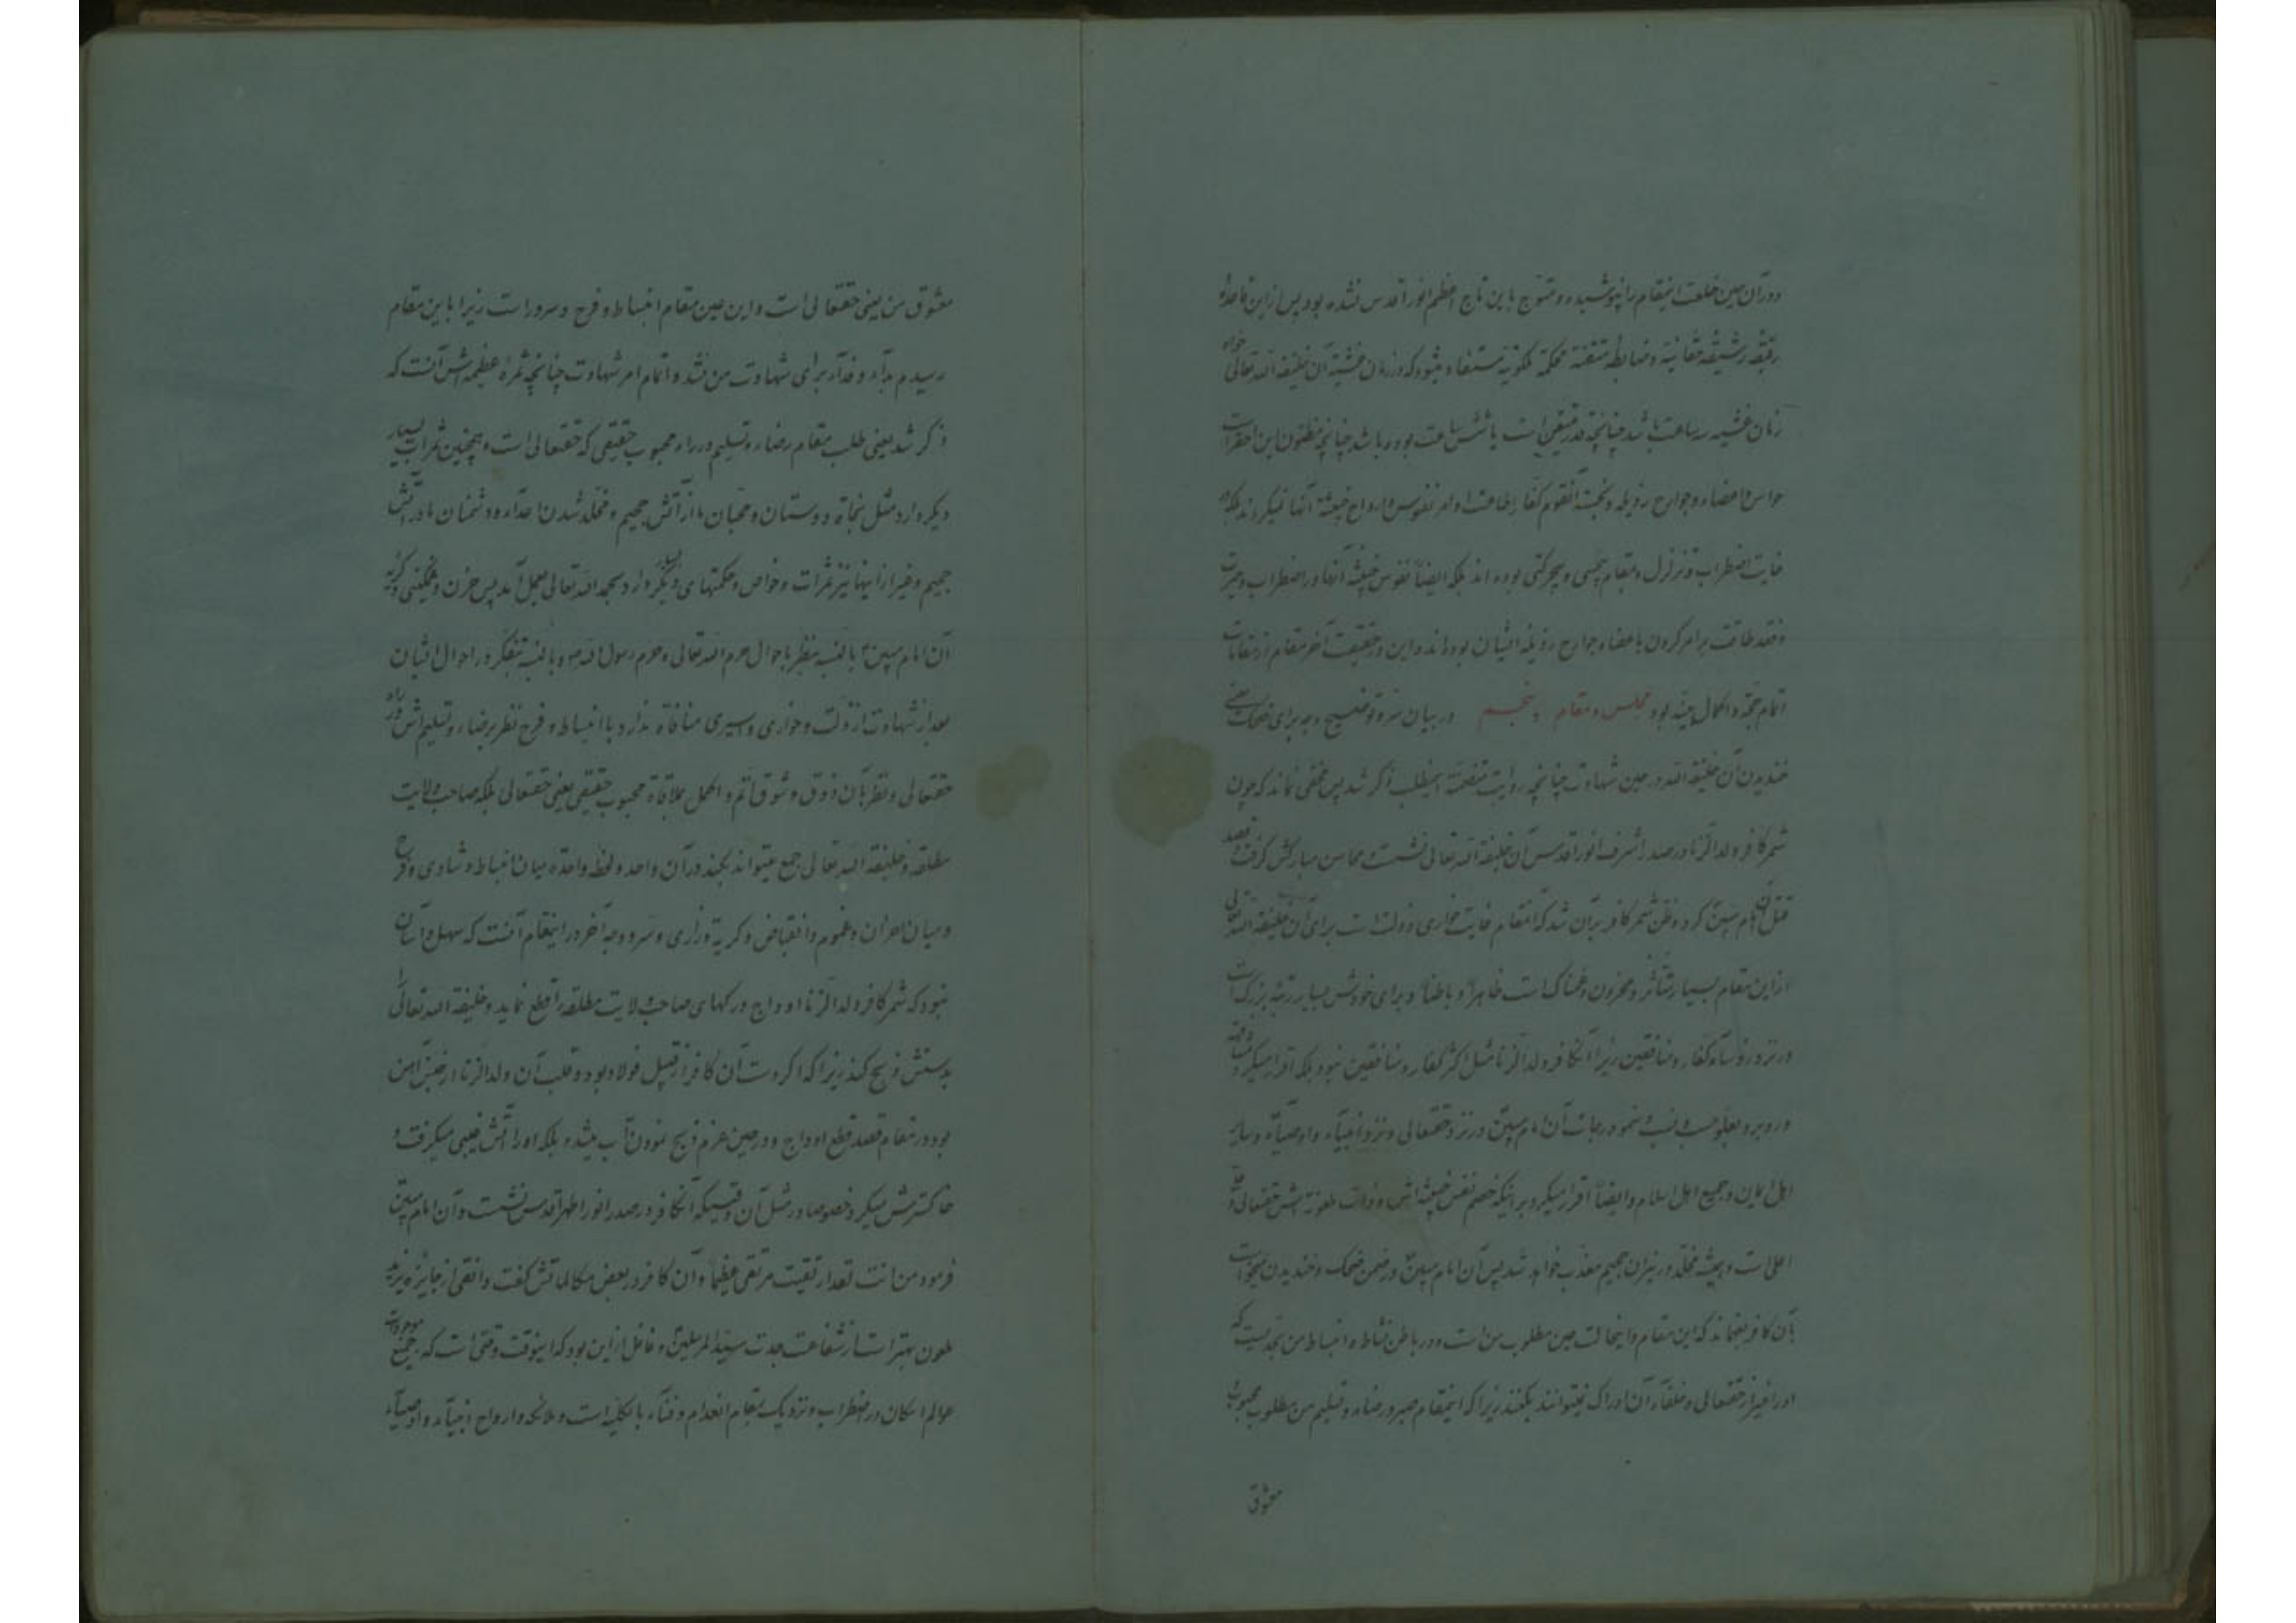 دوران حین خلعت اینمقام را نپوشیده و متتوج باین تاج اعظم انور اقدس نشده بود پس از این قاعدهٔ
رقیقه رشیقه حقانیه و ضابطه متقنه محکمه ملکوتیه مستفاد میشود که در زمان غشیه آن خلیفة الله تعالی خواه
زمان غشیه سه ساعت باشد چنانچه قدر متیقن است یا شش ساعت بوده باشد چنانچه مظنون این احقر است
حواس و اعضاء و جوارح رذیله و نجسه آنقوم کفار اطاعت اوامر نفوس و ارواح خبیثه آنها نمیکردند بلکه در
غایت اضطراب و تزلزل و مقام بیحسی و بیحرکتی بوده اند بلکه ایضاً نفوس خبیثه آنها در اضطراب و حیرت
و فقد طاقت بر امر کردن باعضاء و جوارح رذیله ایشان بوده اند و این در حقیقت آخر مقام از مقامات
اتمام حجة و اکمال بینه بود مجلس و مقام پنجم در بیان سر و توضیح وجه برای ضحک یعنی
خندیدن آن خلیفة الله در حین شهادت چنانچه روایت متضمنه اینمطلب ذکر شد پس مخفی نماند که چون
شمر کافر ولد الزنا در صدر اشرف انور اقدس آن خلیفة الله تعالی نشست و محاسن مبارکش گرفت و قصد
قتل آن امام مبین کرد و ظن شمر کافر بر آن شد که اینمقام غایت خواری و ذلت است برای آن خلیفة الله تعالی
از این مقام بسیار متأثر و محزون و غمناک است ظاهراً و باطناً و برای خودش بسیار رتبه بزرگ است
در نزد رؤساء کفار و منافقین زیرا آنکافر ولد الزنا مثل اکثر کفار و منافقین نبود بلکه اقرار میکرد
در رو برو بعلو حسب و نسب و سمو درجات آن امام مبین در نزد حقتعالی و نزد انبیاء و اوصیاء و سایر
اهل ایمان و جمیع اهل اسلام و ایضاً اقرار میکرد بر اینکه خصم نفس خبیثه اش و ذات ملعونه اش حقتعالی
اعلی است و همیشه مخلد در نیران جحیم معذب خواهد شد پس آن امام مبین در ضمن ضحک و خندیدن میخواست
بآن کافر بفهماند که این مقام و اینحالت عین مطلوب من است و در باطن نشاط و انبساط من بحدیست که
او را غیر از حقتعالی و خلفاء آن ادراک نمیتوانند بکنند زیرا که اینمقام صبر و رضاء و تسلیم من مطلوب محبوب و
معشوق
معشوق من یعنی حقتعالی است و این عین مقام انبساط و فرح و سرور است زیرا باین مقام
رسیدم بدآء و فدآء برای شهادت من شد و اتمام امر شهادت چنانچه ثمرهٔ عظیمه اش آنست که
ذکر شد یعنی طلب مقام رضاء و تسلیم در راه محبوب حقیقی که حقتعالی است و همچنین ثمرات بسیار
دیگر دارد مثل نجاة دوستان و محبان ما از آتش جحیم و مخلد شدن اعدآء و دشمنان ما در آتش
جحیم و غیر از اینها نیز ثمرات و خواص و حکمتهای دیگر دارد بحمد الله تعالی بعمل آمد پس حزن و غمگینی و گریه
آن امام مبین بالنسبه بنظر باحوال حرم الله تعالی و حرم رسول الله ص و بالنسبه بتفکر در احوال ایشان
بعد از شهادت از ذلت و خواری و اسیری منافاة ندارد با انبساط و فرح نظر برضاء و تسلیم اش در راه
حقتعالی و نظر بآن ذوق و شوق اتم و اکمل ملاقاة محبوب حقیقی یعنی حقتعالی بلکه صاحب ولایت
مطلقه و خلیفة الله تعالی جمع میتواند بکند در آن واحد و لحظه واحده میان انبساط و شادی و فرح
و میان احزان و غموم و انقباض و گریه و زاری و سر و وجه آخر در اینمقام آنست که سهل و آسان
نبود که شمر کافر ولد الزنا اوداج و رگهای صاحب ولایت مطلقه را قطع نماید و خلیفة الله تعالی را
بدستش ذبح کند زیرا که اگر دست آن کافر از قبیل فولاد بود و قلب آن ولد الزنا از جنس آهن
بود در مقام قصد قطع اوداج و در حین عزم ذبح نمودن آب میشد بلکه او را آتش غیبی میگرفت و
خاکسترش میکرد خصوصا در مثل آن وقتیکه آنکافر در صدر انور اطهر اقدس نشست و آن امام مبین
فرمود من انت لقد ارتقیت مرتقی عظیماً و آن کافر در بعض مکالماتش گفت دانقی از جایزه یزید
ملعون بهتر است از شفاعت جدت سید المرسلین و غافل از این بود که اینوقت وقتی است که جمیع موجودات
عوالم امکان در اضطراب و نزدیک بمقام انعدام و فناء بالکلیه است و ملائکه و ارواح انبیآء و اوصیآء